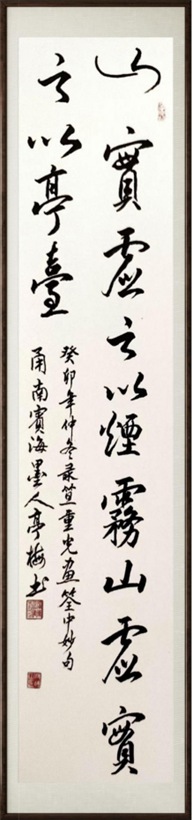 山實虛之以煙霧山虛實
之以亭臺
癸卯年仲冬录笪重光画筌中妙句
甬南賓海墨人亭梅书